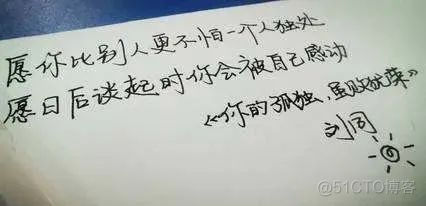 愿你比别人更不怕一个人独处
愿日后谈起时你会被自己感动
《你的孤独,虽败犹荣》
刘同
@51CTO博客